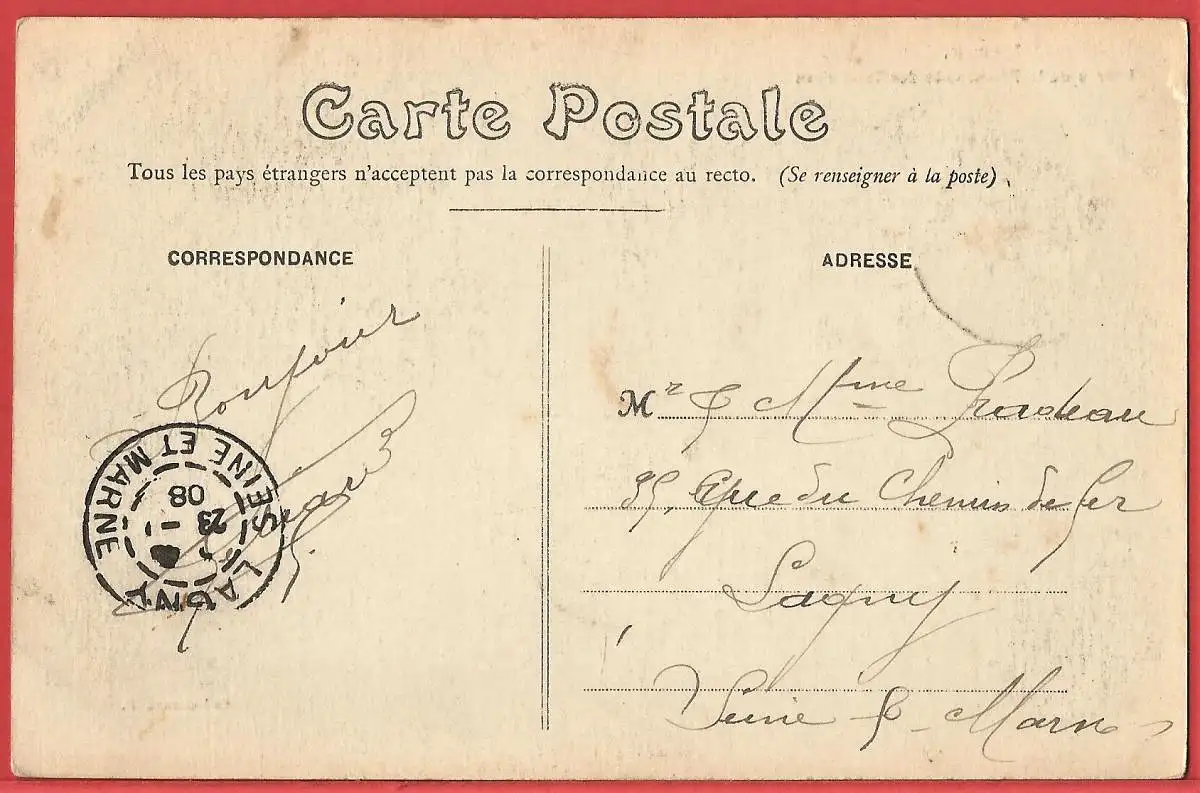 Carte Postale
Tous les pays étrangers n'acceptent pas la correspondance au recto. (Se renseigner à la poste)
CORRESPONDANCE
Bonjour
LAGNY
SEINE ET MARNE
23
08
ADRESSE
Mr & Mme Pradeau
35, du Chemin de fer
Lagny
Seine & Marne